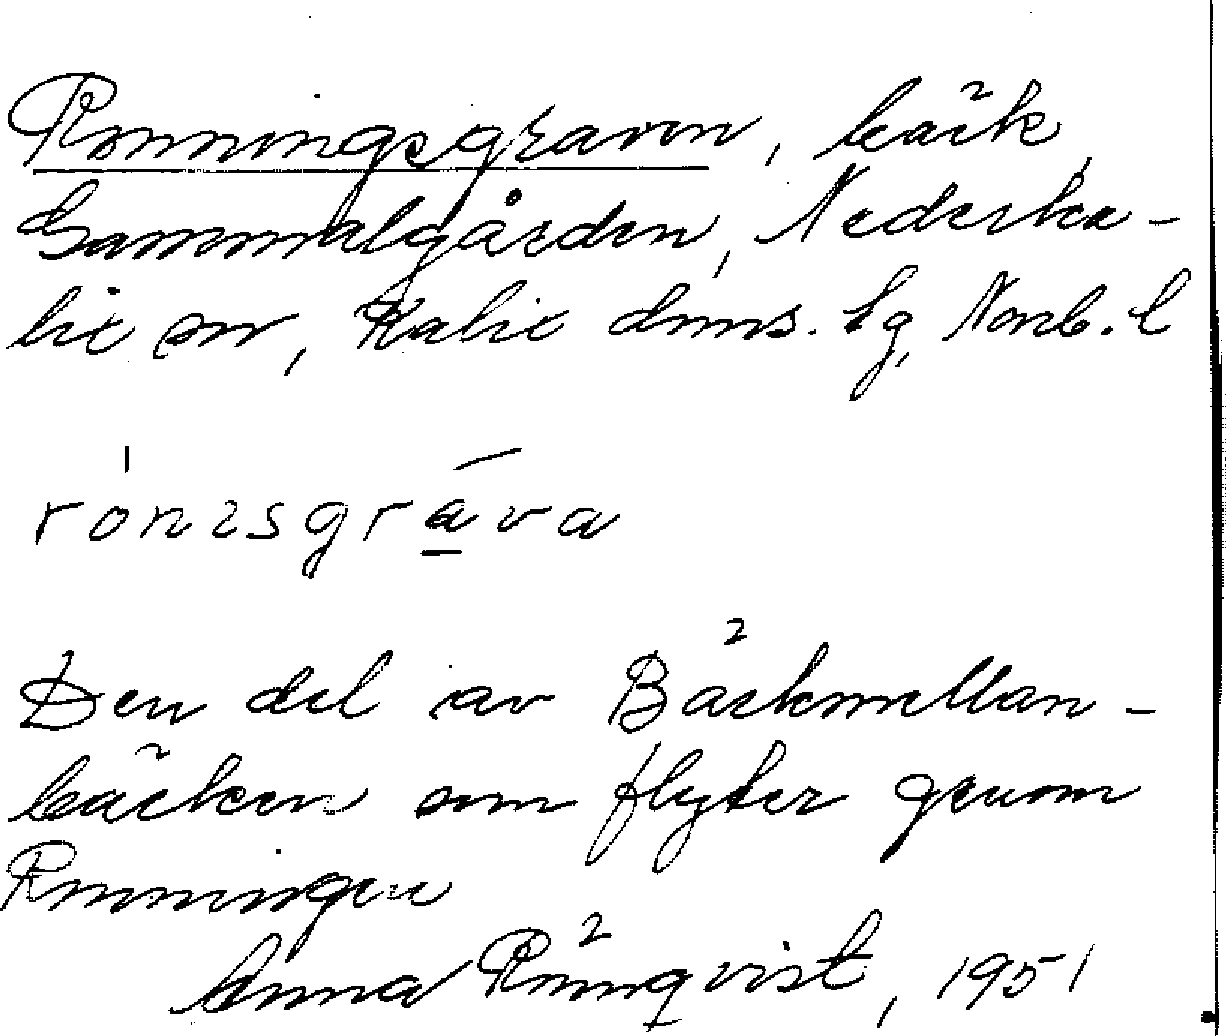 Ronningsgraven, bäck,
Gammalgården, Nederka-
lix sn, Kalix doms. lg, Norrb. l
ronisgrava
Den del av Bäckmellan-
bäcken som flyter genom
Ronningen
Anna Rönnqvist, 1951